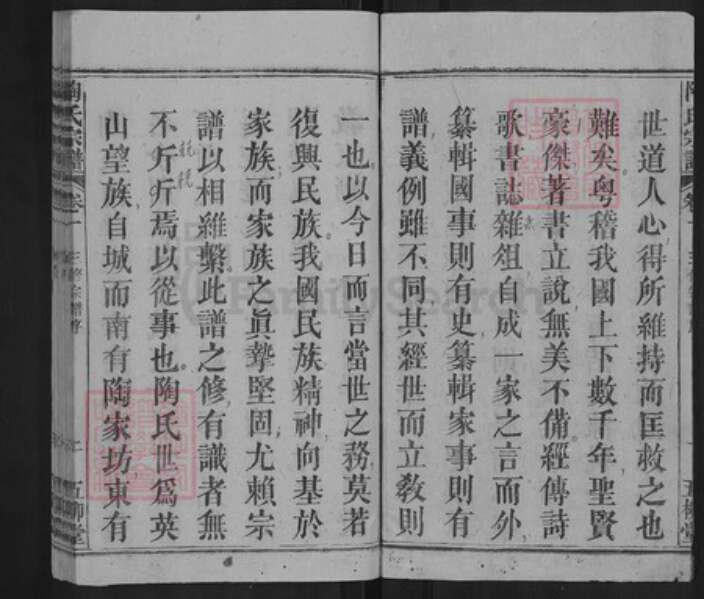 世道人心得所維持而匡救之也
難矣粤稽我國上下數千年聖賢
豪傑著書立說無美不備經傳詩
歌書誌雜俎自成一家之言而外
纂輯國事則有史纂輯家事則有
譜義例雖不同其經世而立教則
一也以今日而言當世之務莫若
復興民族我國民族精神向基於
家族而家族之眞摯堅固尤賴宗
譜以相維繫此譜之修有識者無
不斤斤焉以從事也陶氏世爲英
山望族自城而南有陶家坊東有
陶氏宗譜 卷一
五柳堂
FamilySearch